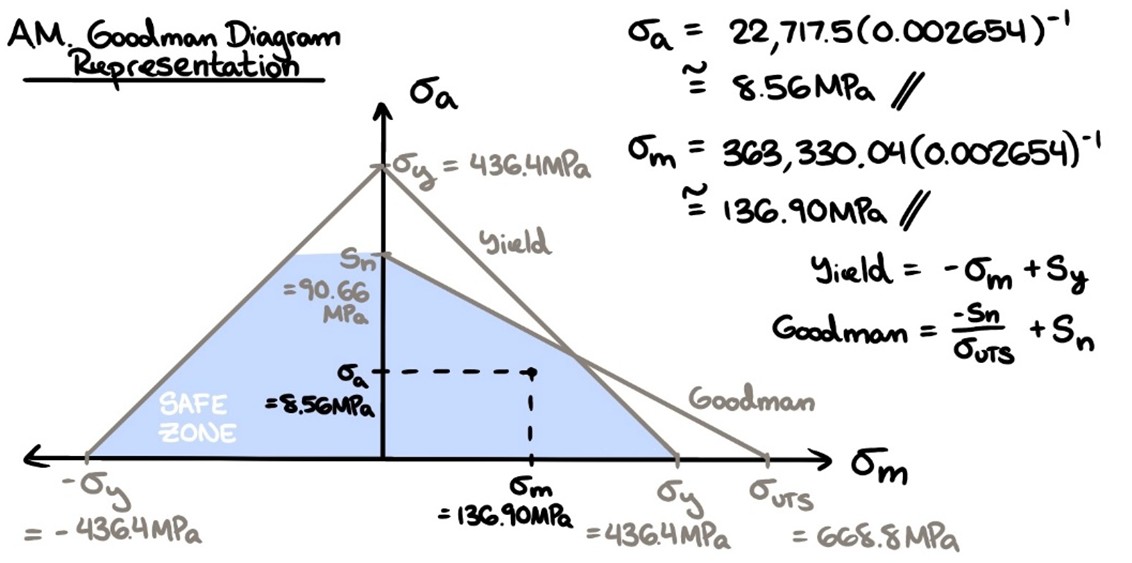 AM. Goodman Diagram
Representation
σa = 22,717.5(0.002654)⁻¹
≅ 8.56MPa //
σm = 363,330.04(0.002654)⁻¹
≅ 136.90MPa //
Yield = -σm + Sy
Goodman = -Sn/σUTS + Sn
σa
σy = 436.4MPa
Yield
Sn
=90.66
MPa
σa
=8.56MPa
SAFE
ZONE
Goodman
σm
-σy
= -436.4MPa
σm
=136.90MPa
σy
=436.4MPa
σUTS
= 668.8MPa